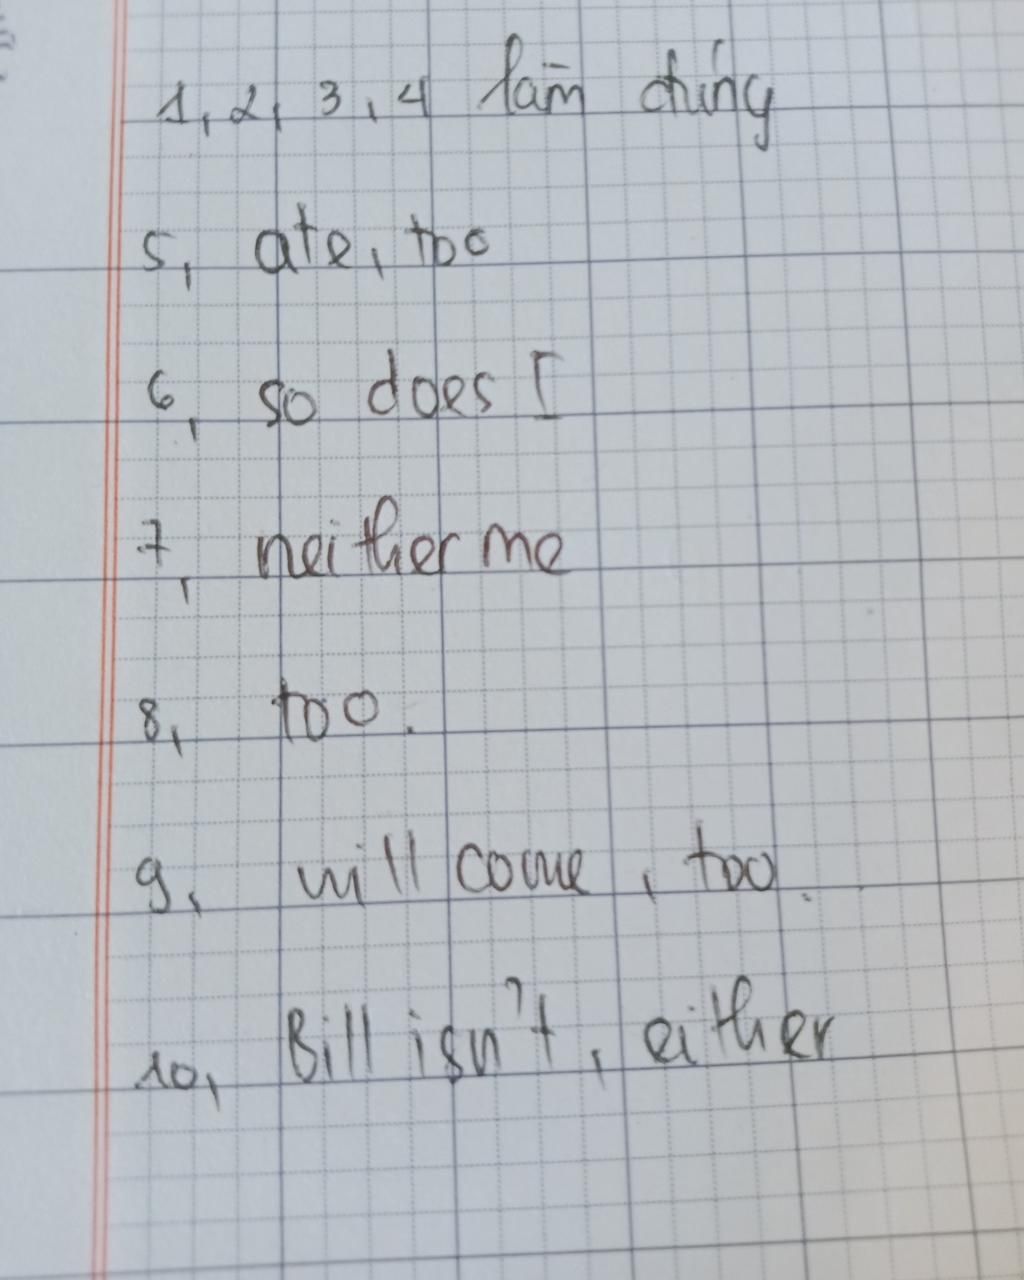 1, 2, 3, 4 làm đúng
5, ate, too
6, so does I
7, neither me
8, too.
9, will come, too.
10, Bill isn't, either